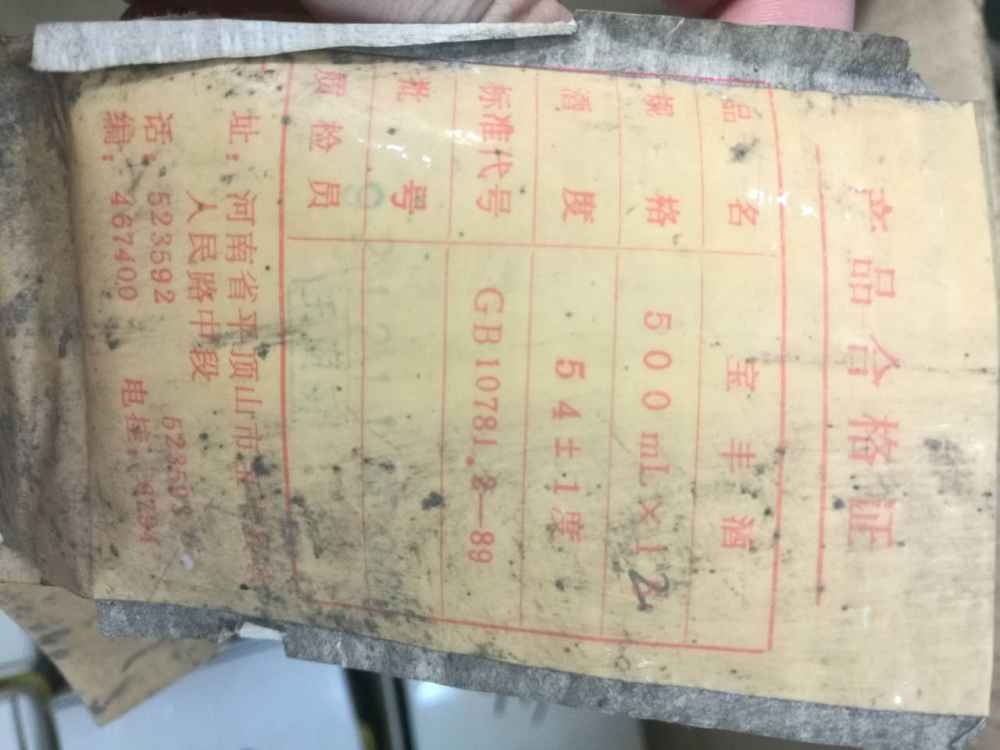 产品合格证
品名 宝丰酒
规格 500mL×12
酒度 54±1度
标准代号 GB10781.2—89
批号
质检员
址：河南省平顶山市
人民路中段
话：523592
编：467400 电挂：